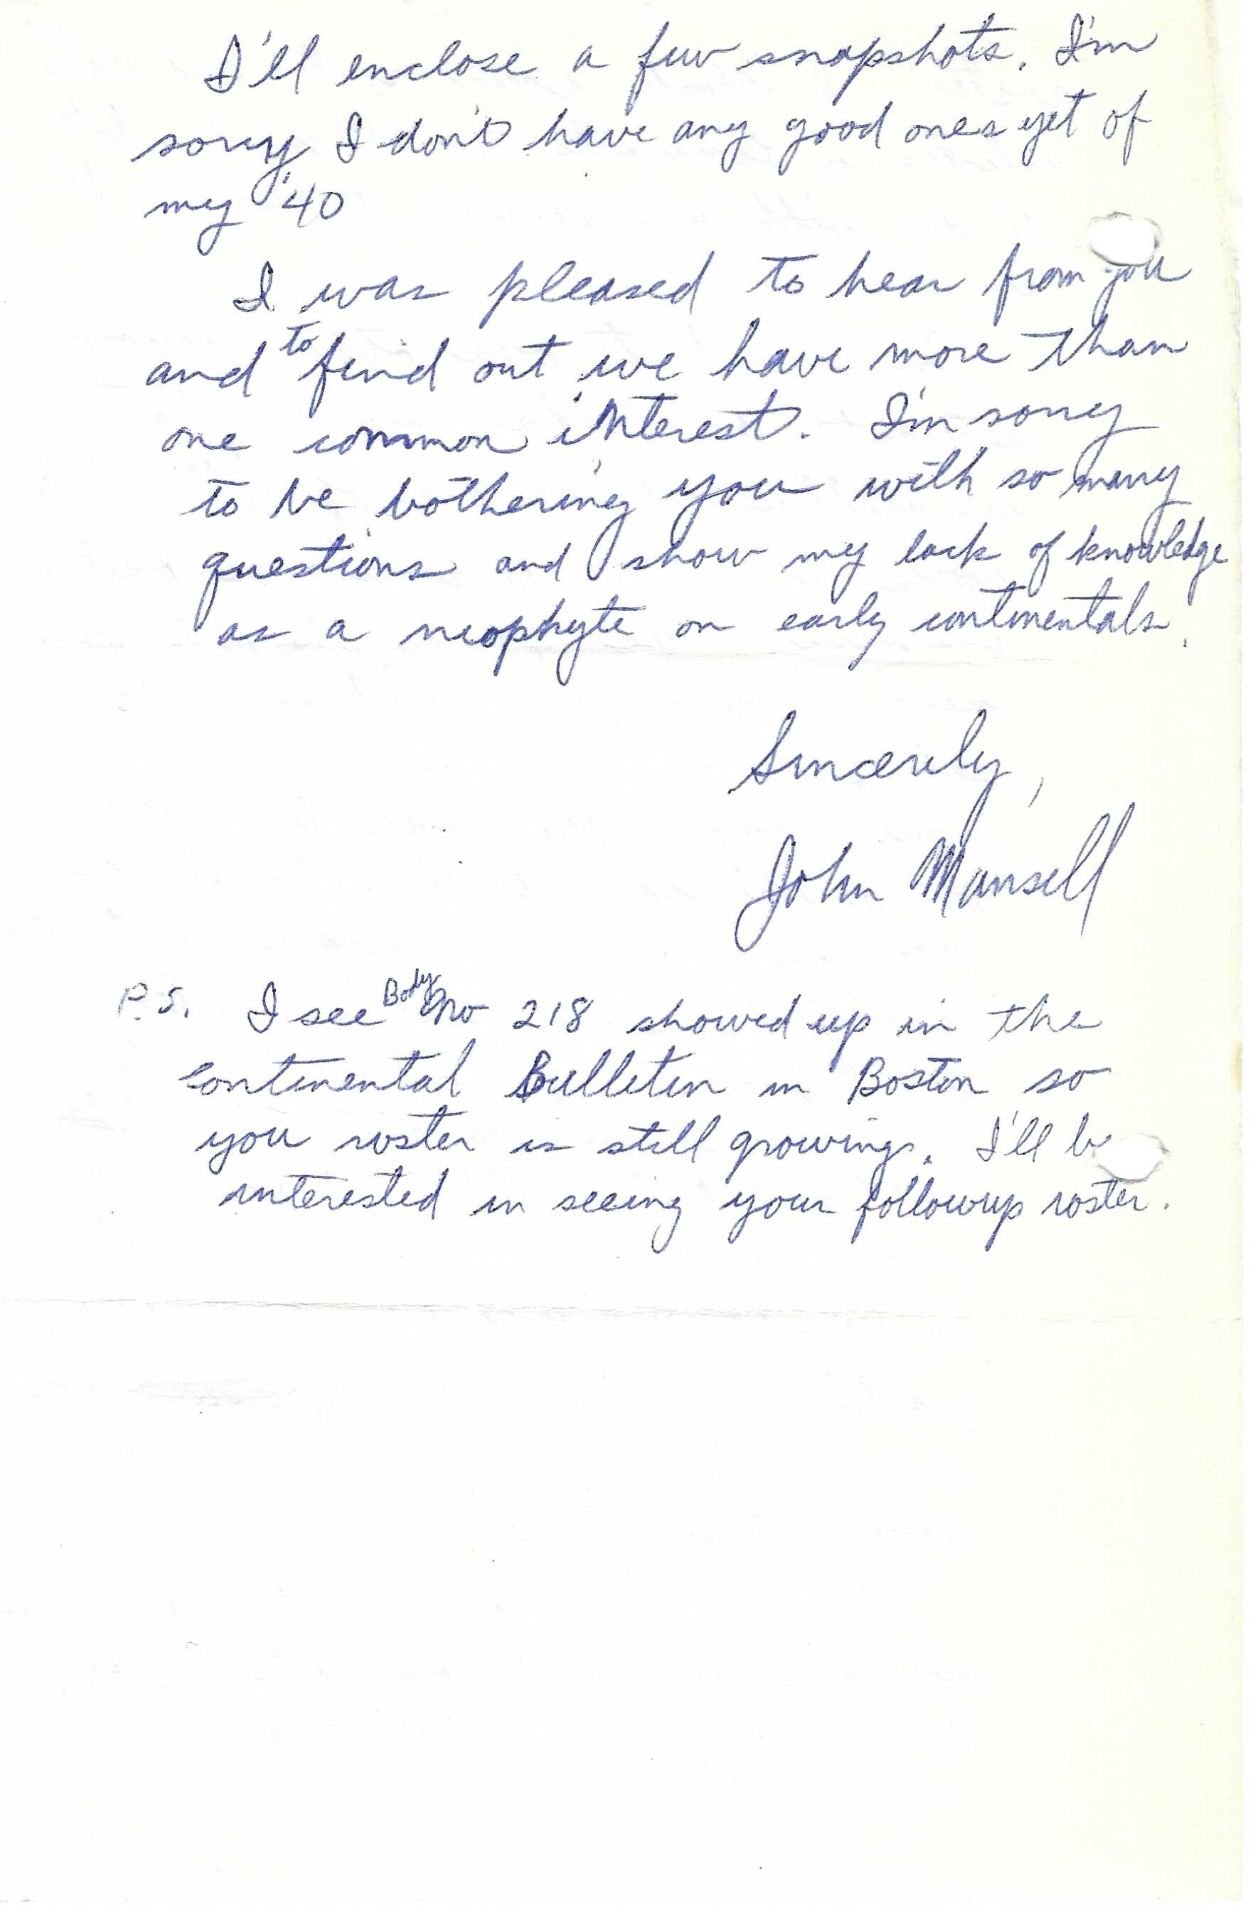 I'll enclose a few snapshots. I'm
sorry I don't have any good ones yet of
my '40
I was pleased to hear from you
and to find out we have more than
one common interest. I'm sorry
to be bothering you with so many
questions and show my lack of knowledge
as a neophyte on early continentals.
Sincerely,
John Mansell
P.S. I see Body No 218 showed up in the
continental Bulletin in Boston so
you roster is still growing. I'll be
interested in seeing your followup roster.